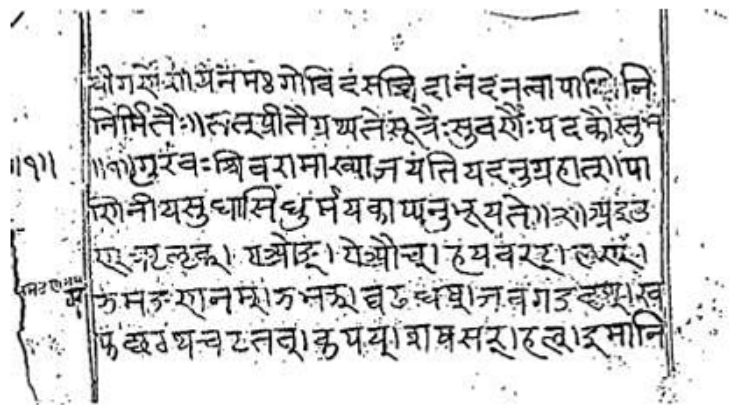 श्रीगणेशायनमः गोविंदंसच्चिदानंदंनत्वापाणिनि
निर्मितैः॥तत्प्रीत्यैग्रथ्यतेसूत्रैःसुवर्णैःपदकौस्तुभ
॥१॥ ॥१॥गुरवःशिवरामाख्याजयंतियदनुग्रहात्॥पा
णिनीयसुधासिंधुर्मयकाप्यनुभूयते॥२॥अइउ
ण् ऋलृक्। एओङ्। ऐऔच्। हयवरट्। लण्।
ञमङणनम्। झभञ्। घढधष्। जबगडदश्। ख
फछठथचटतव्। कपय्। शषसर्। हल्। इमानि